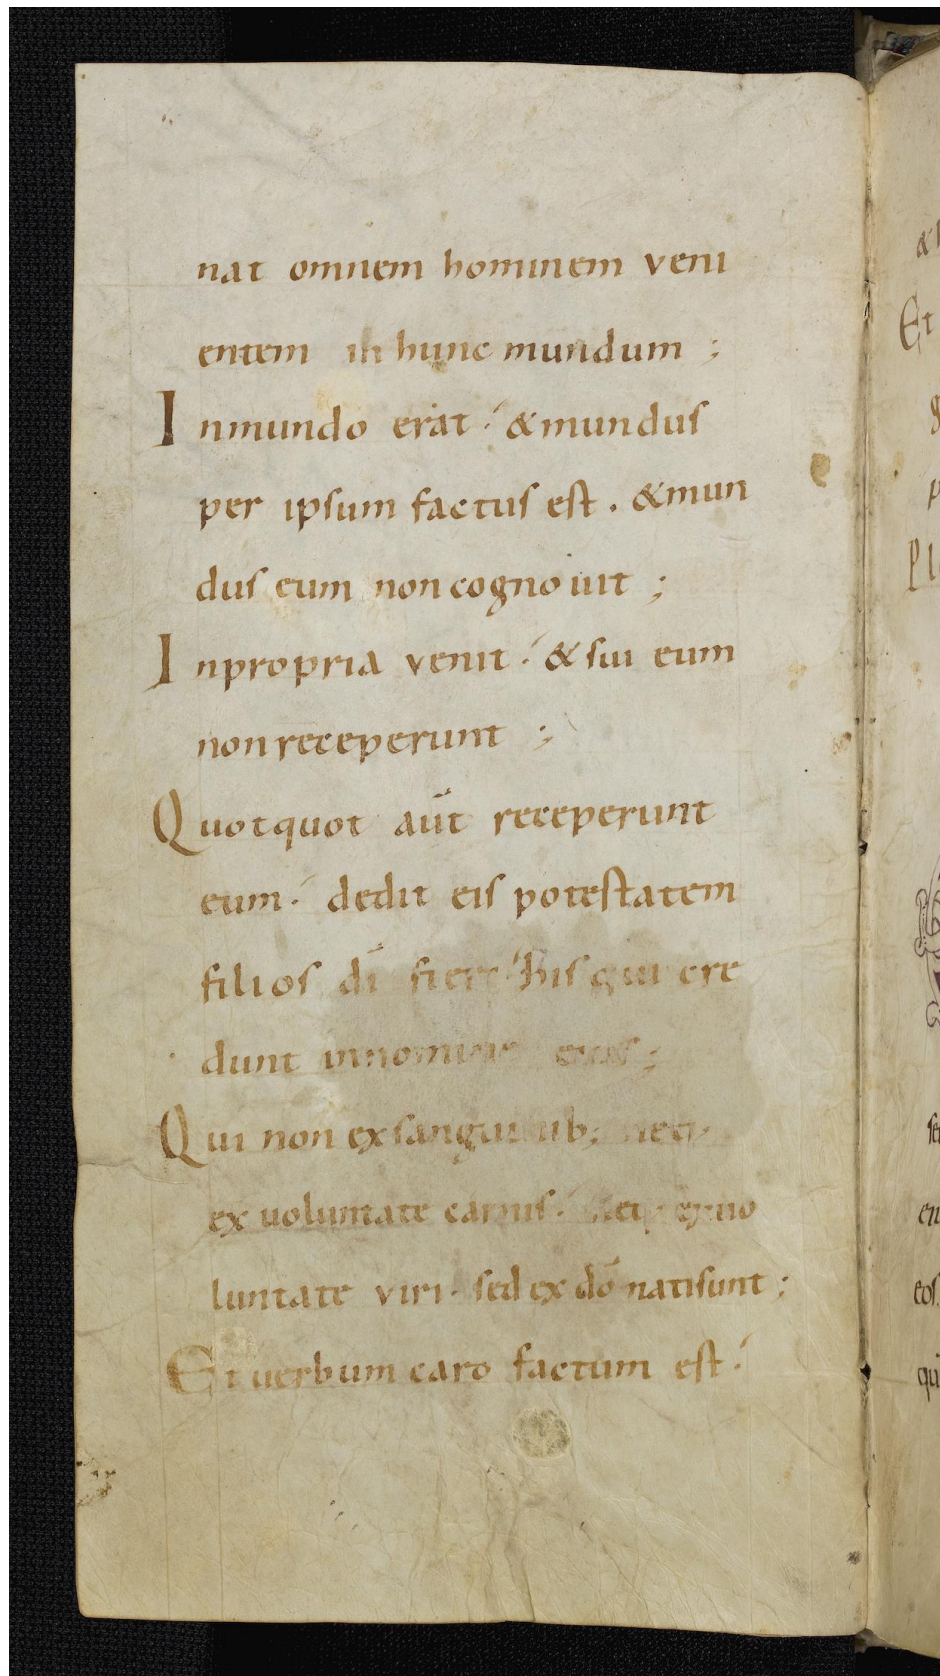 nat omnem hominem veni
entem in hunc mundum ;
I nmundo erat & mundus
per ipsum factus est . & mun
dus eum non cognouit ;
I npropria venit & sui eum
non receperunt ;
Quotquot aūt receperunt
eum dedit eis potestatem
filios dī fieri his qui cre
dunt innomine eius ;
Qui non ex sanguinib;
ex uoluntate carnis exuo
luntate viri sed ex dō natisunt ;
Et uerbum caro factum est
Et